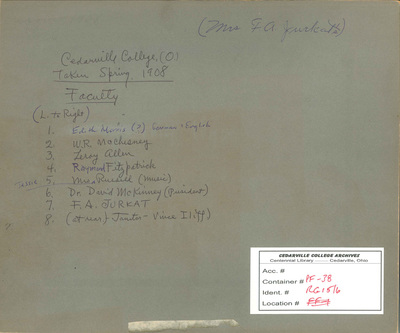 (Mrs F A Jurkat)
Cedarville College, (O)
Taken Spring 1908
Faculty
(L. to Right)
1. Edith Morris (?) German & English
2. W.R. McChesney
3. Leroy Allen
4. Raymond Fitzpatrick
5. Mrs Russell (Music)
6. Dr. David McKinney (President)
7. F.A. JURKAT
8. (at rear) Janitor - Vince Iliff
CEDARVILLE COLLEGE ARCHIVES
Centennial Library Cedarville, Ohio
Acc. #
Container # PF-38
Ident. # RG 15/6
Location #